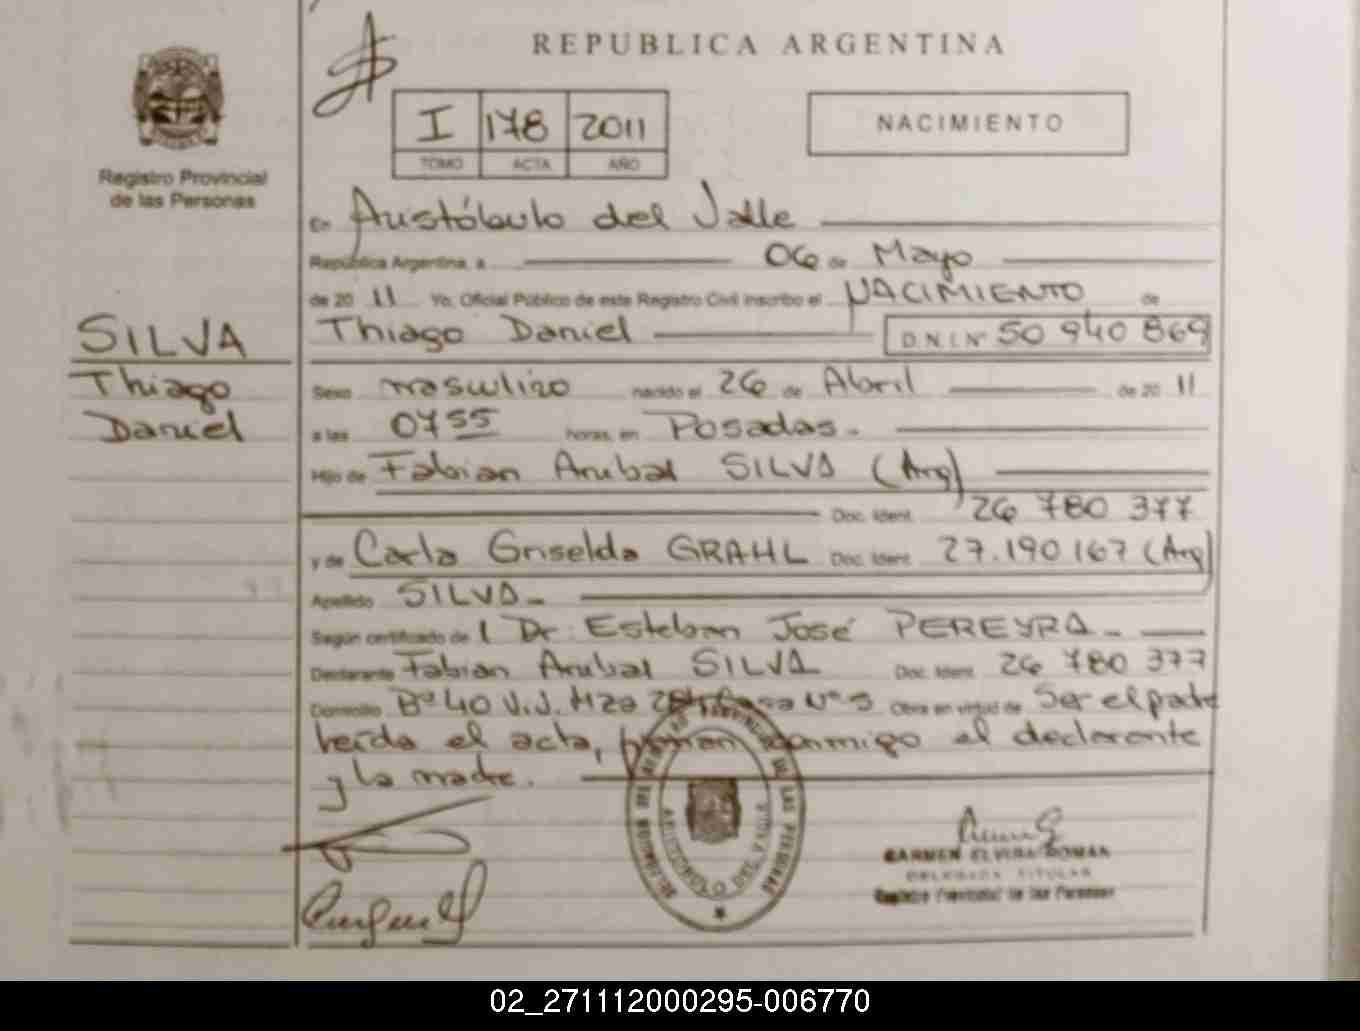 REPUBLICA ARGENTINA
I 178 2011
TOMO ACTA AÑO
NACIMIENTO
Registro Provincial
de las Personas
SILVA
Thiago
Daniel
En Aristóbulo del Valle
República Argentina, a 06 de Mayo
de 20 11 Yo, Oficial Público de este Registro Civil inscribo el NACIMIENTO de
Thiago Daniel D.N.I. Nº 50 940 869
Sexo masculino nacido el 26 de Abril de 20 11
a las 0755 horas, en Posadas.
Hijo de Fabian Anibal SILVA (Arg)
Doc. Ident. 26 780 377
y de Carla Griselda GRAHL Doc. Ident. 27.190.167 (Arg)
Apellido SILVA
Según certificado de l Dr. Esteban José PEREYRA
Declarante Fabian Anibal SILVA Doc. Ident. 26 780 377
Domicilio Bº 40 V.J. Mza Casa Nº 5 Obra en virtud de Ser el padre
leída el acta, firman conmigo el declarante
y la madre.
CARMEN ELVIRA ROMAN
DELEGADA TITULAR
Registro Provincial de las Personas
02_271112000295-006770